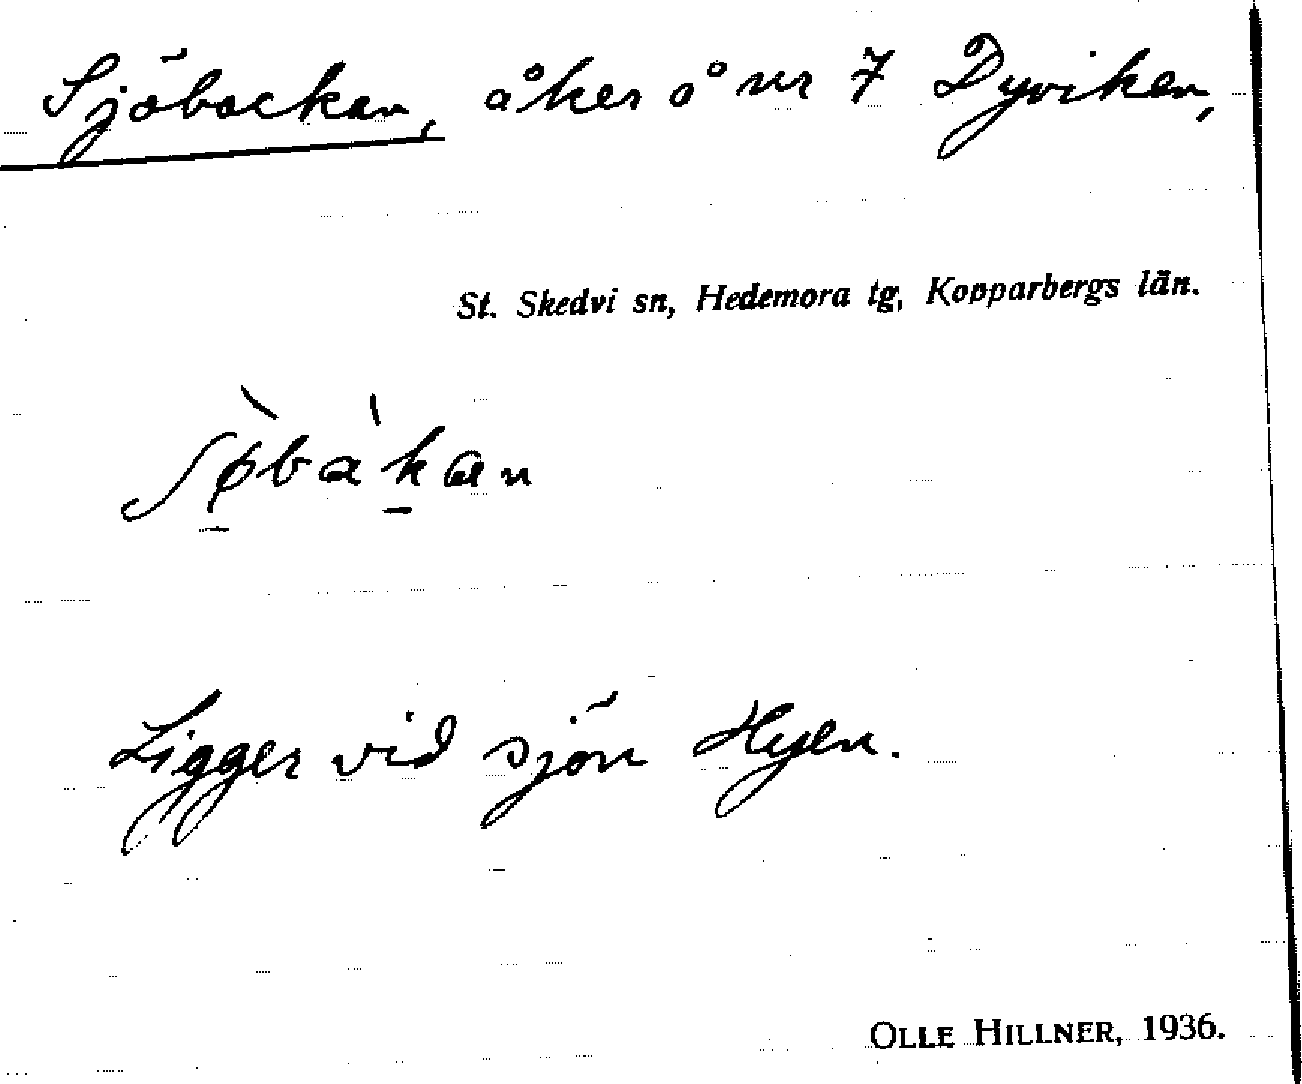 Sjöbackan, åker å nr 7 Dyviken,
St. Skedvi sn, Hedemora tg, Kopparbergs län.
Ligger vid sjön Hyen.
OLLE HILLNER, 1936.